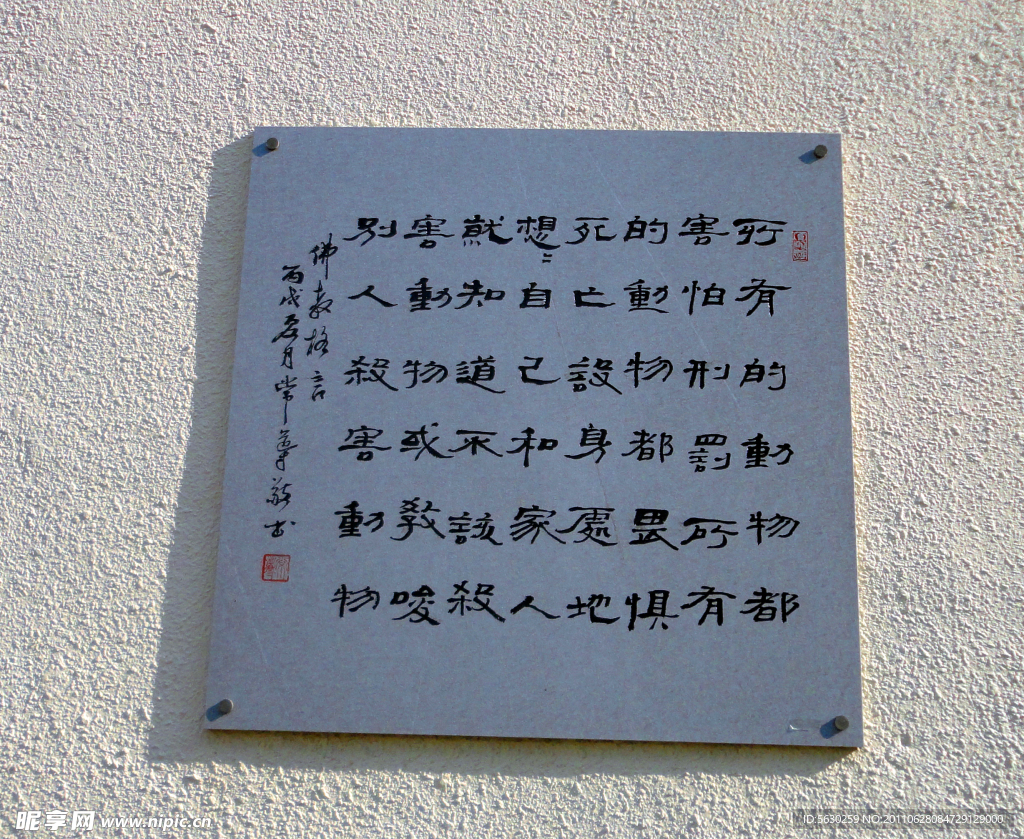 所有的動物都
害怕刑罰所有
的動物都畏懼
死亡設身處地
想〻自己和家人
就知道不該殺
害動物或教唆
別人殺害動物
佛教格言
丙戌
月
敬書
昵享网 www.nipic.cn
ID:5630259 NO:20110628084729129000